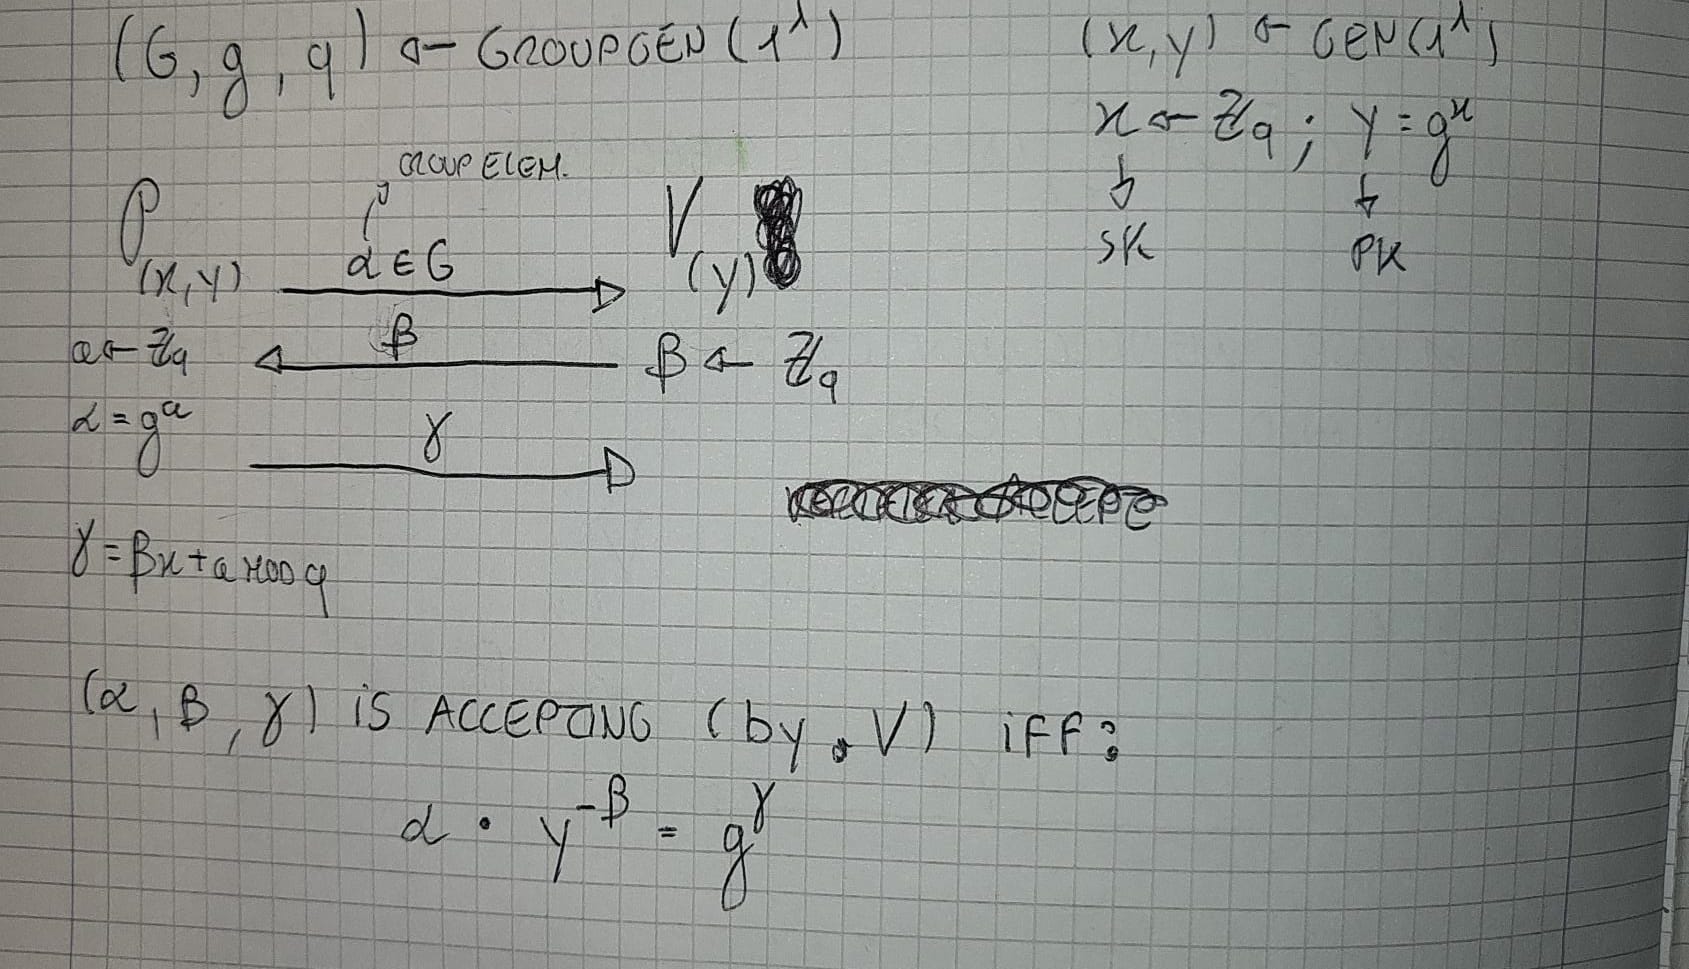 (G, g, q) ← GROUPGEN (1^λ)
(x, y) ← GEN(1^λ)
x ← ℤq ; y = g^x
SK PK
GROUP ELEM.
P V
α ∈ G
(x, y) (y)
β
a ← ℤq β ← ℤq
α = g^a
γ
γ = βx + a MOD q
(α, β, γ) iS ACCEPTING (by V) iFF:
α · y^-β = g^γ